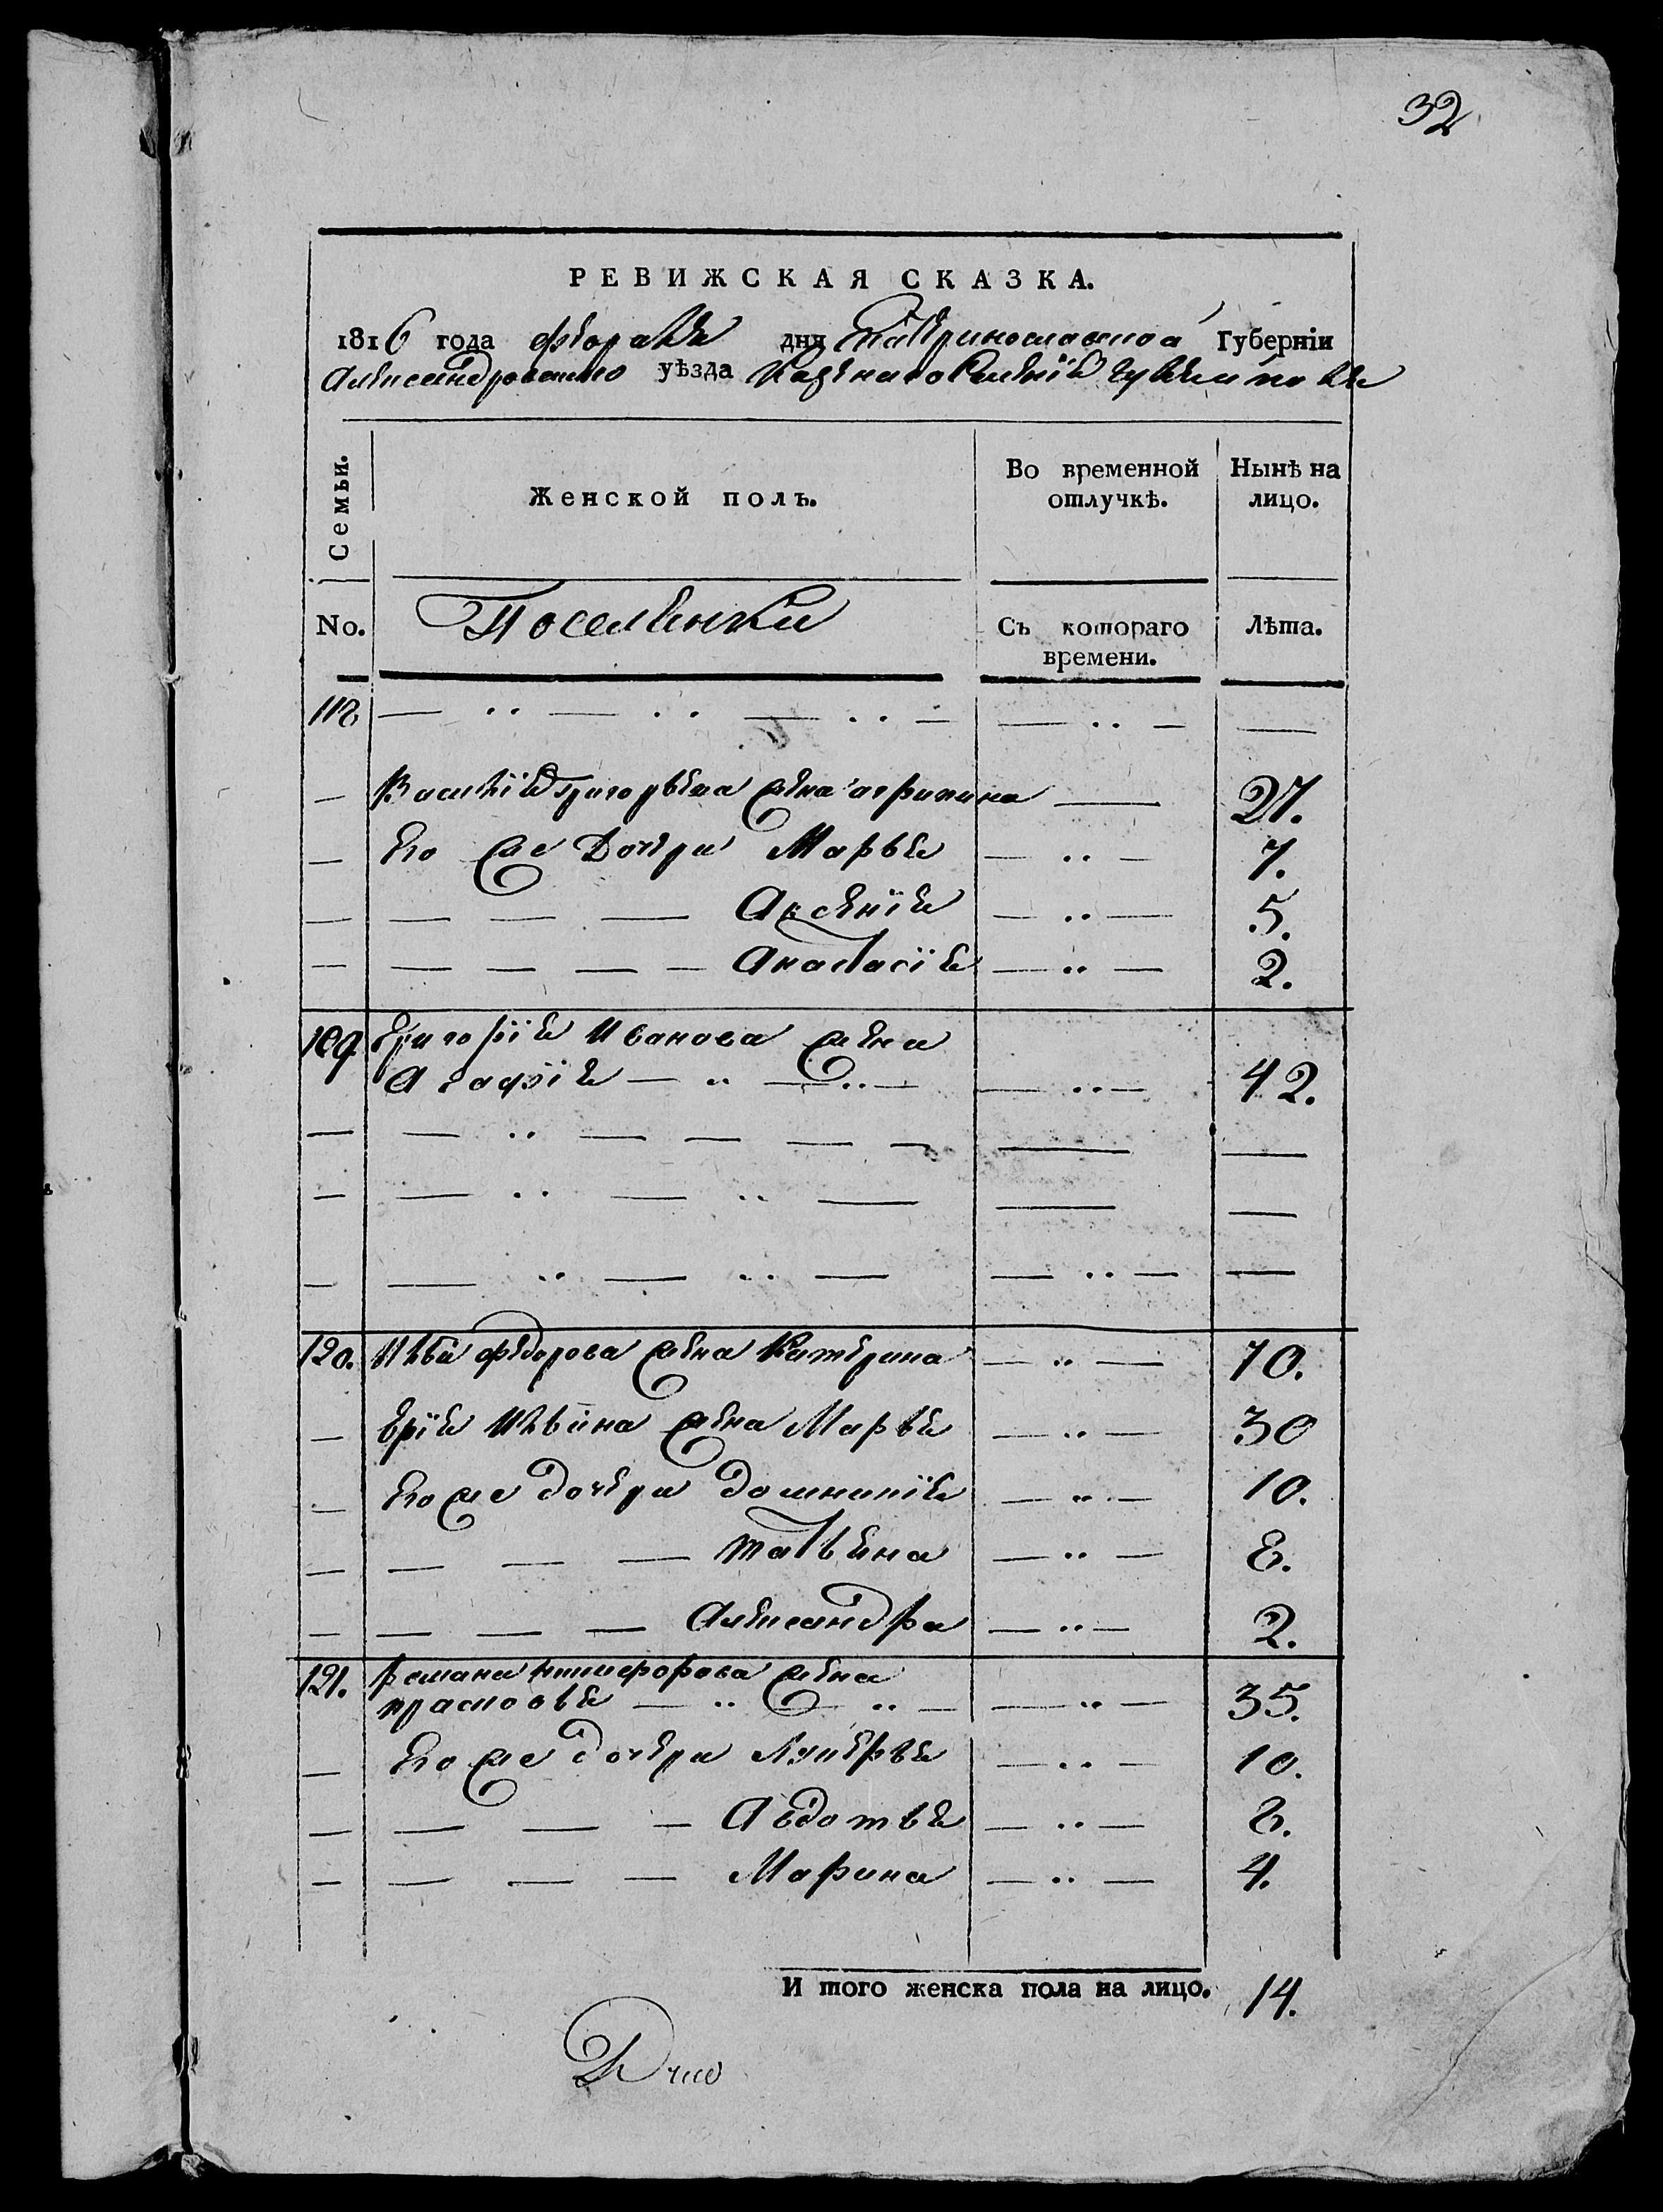 32
РЕВИЖСКАЯ СКАЗКА.
1816 года февраля дня Екатеринославской Губерніи
Александровскаго уѣзда Казеннаго Селенія
Семьи.
Женской полъ.
Во временной отлучкѣ.
Нынѣ на лицо.
No.
Поселянки
Съ котораго времени.
Лѣта.
118
Василія Григорьева жена агрипина 27.
Его же Дочери Марья 7.
Аксенія 5.
Анастасія 2.
Григорія Иванова жена
Агафія 42.
120. Федорова жена Катерина 70.
жена Марья 30
Его же дочери домникія 10.
татьяна 8.
Александра 2.
121. романа никифорова жена
прасковья 35.
Его же дочери Лукерья 10.
Авдотья 8.
Марина 4.
И того женска пола на лицо. 14.